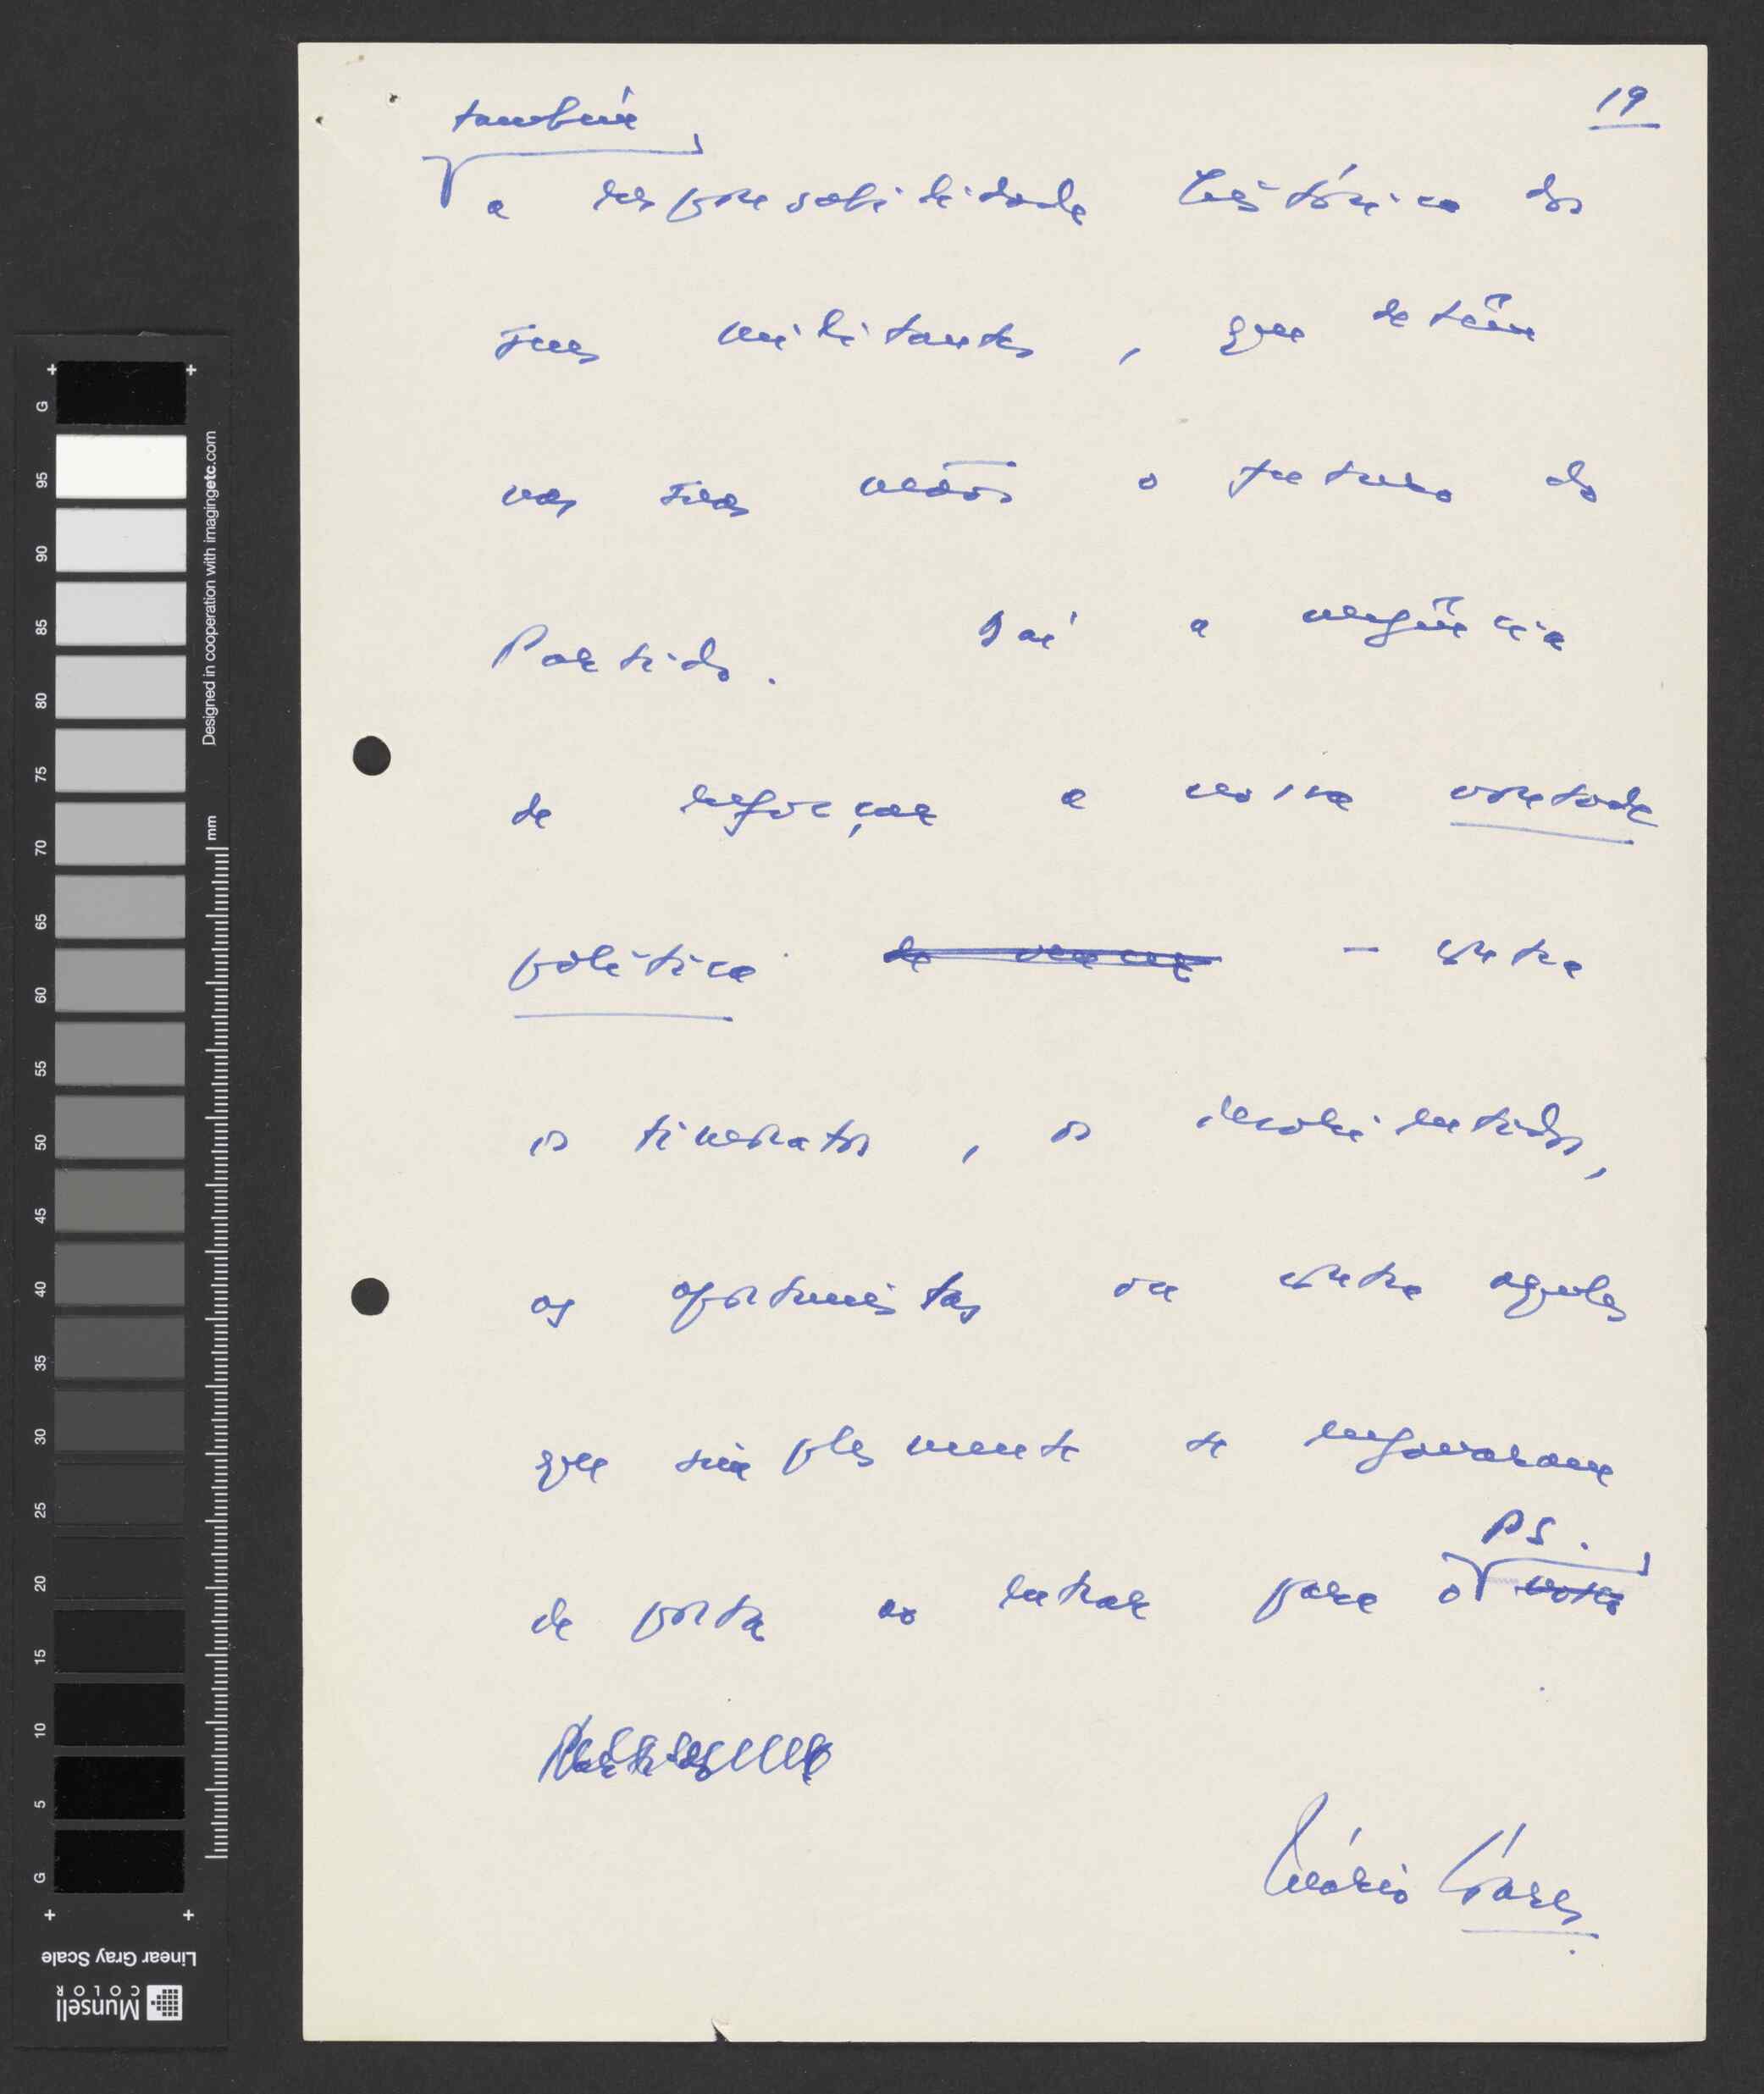 19
também
a responsabilidade histórica dos
seus militantes, que detêm
nas suas mãos o futuro do
Partido. Daí a urgência
de reforçar a nossa vontade
política de vencer - contra
os timoratos, os ressentidos,
os oportunistas ou contra aqueles
que simplesmente se enganaram
PS.
de porta ao entrar para o nosso
Partido
Mário Soares
G
95
90
85
80
75
70
65
60
55
50
45
40
35
30
25
20
15
10
5
G
Designed in cooperation with imagingetc.com
mm
Linear Gray Scale
Munsell
COLOR